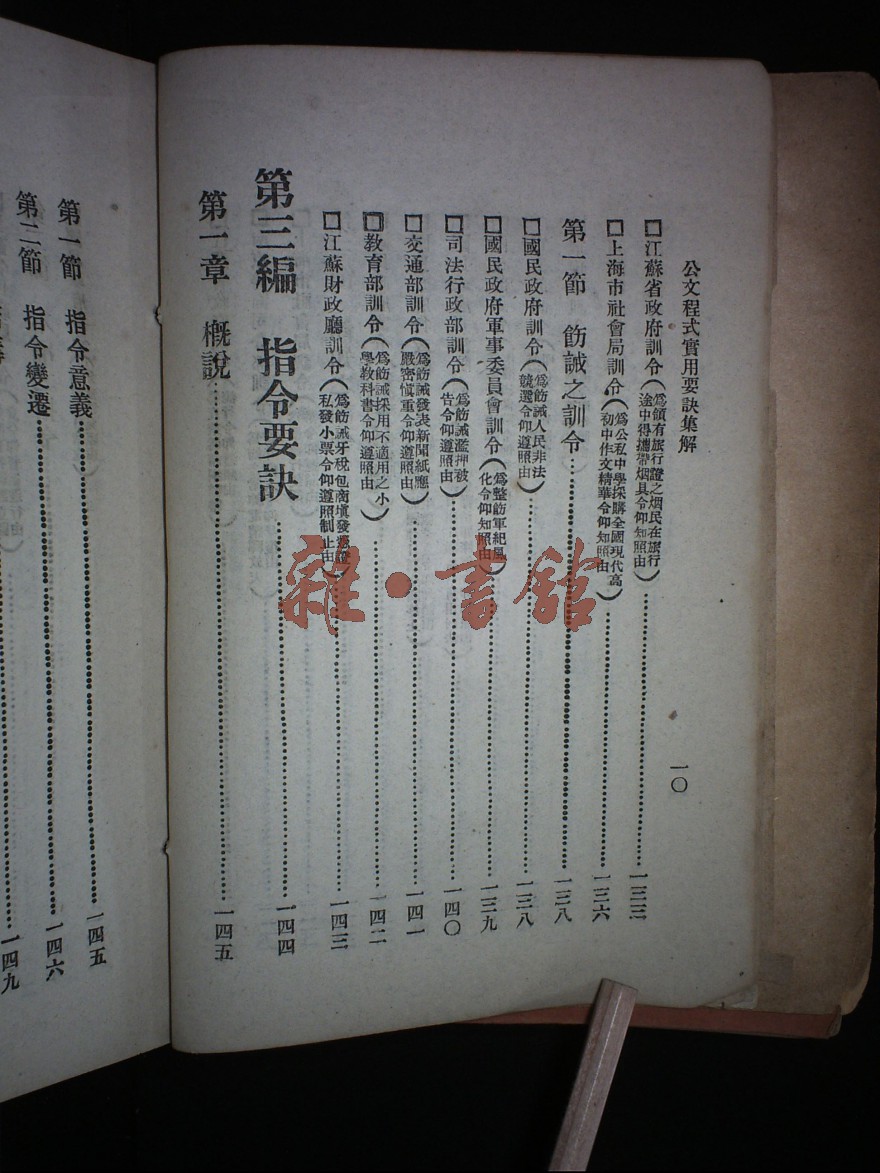 公文程式實用要訣集解
一〇
□江蘇省政府訓令（爲領有旅行證之烟民在旅行途中得攜帶烟具令仰知照由）…一三三
□上海市社會局訓令（爲公私中學採購全國現代高初中作文精華令仰知照由）…一三六
第一節 飭誡之訓令…一三八
□國民政府訓令（爲飭誡人民非法競選令仰遵照由）…一三八
□國民政府軍事委員會訓令（爲整飭軍紀風化令仰知照由）…一三九
□司法行政部訓令（爲飭誡濫押被告令仰遵照由）…一四〇
□交通部訓令（爲飭誡發表新聞紙應嚴密愼重令仰遵照由）…一四一
□教育部訓令（爲飭誡採用不適用之小學教科書令仰遵照由）…一四二
□江蘇財政廳訓令（爲飭誡牙稅包商塡發憑證私發小票令仰遵照制止由）…一四三
第三編 指令要訣…一四四
第一章 概說…一四五
第一節 指令意義…一四五
第二節 指令變遷…一四六
一四九
雜·書館